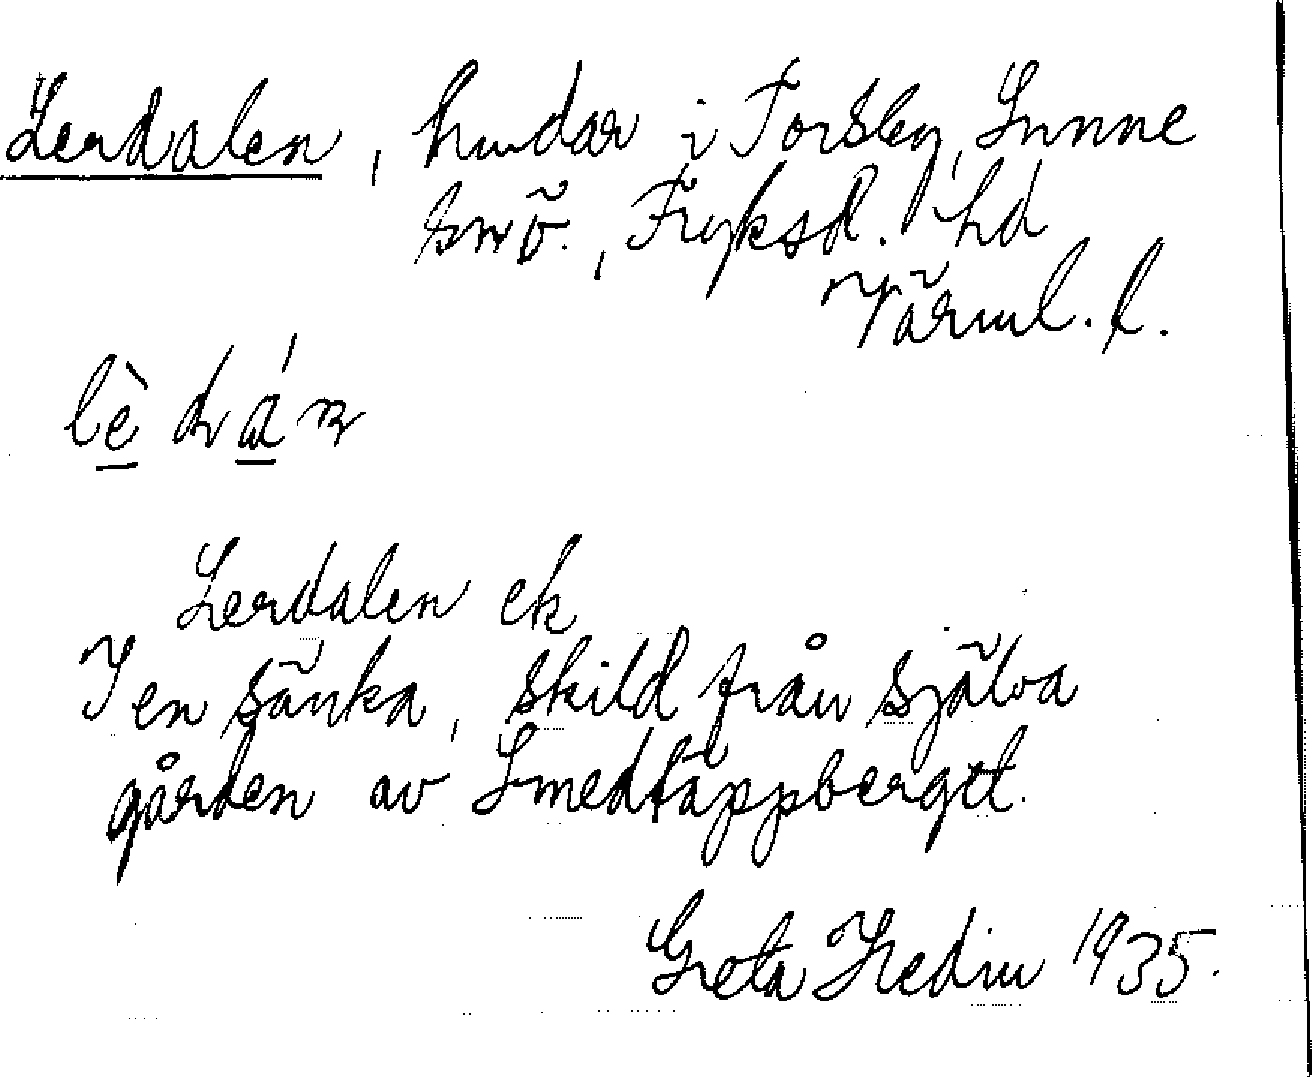 Lerdalen, hmdar i Torsby, Sunne
smö., Fryksd. hd
Värml. l.
Lerdalen ek
I en sänka, skild från själva
gården av Smedtäppberget.
Greta Hedin 1935.